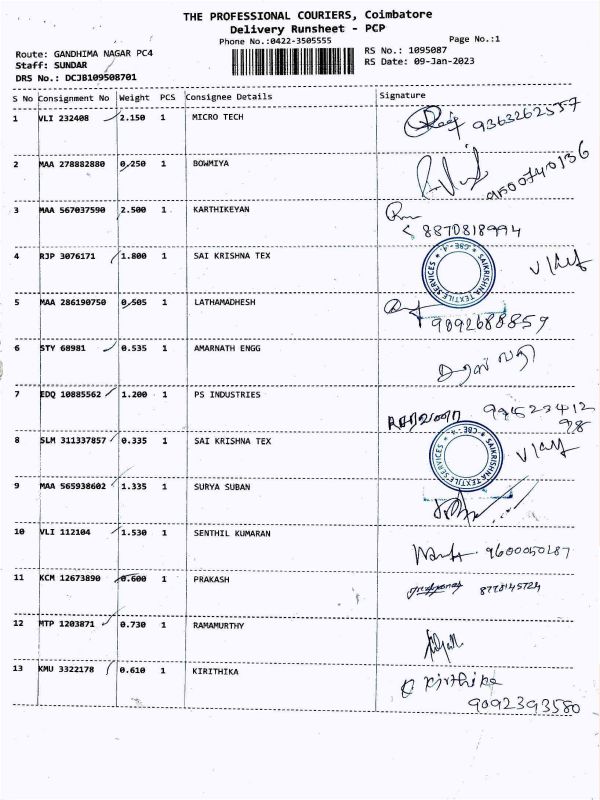 THE PROFESSIONAL COURIERS, Coimbatore
Delivery Runsheet - PCP
Phone No.:0422-3505555
Page No.:1
Route: GANDHIMA NAGAR PC4
RS No.: 1095087
Staff: SUNDAR
RS Date: 09-Jan-2023
DRS No.: DCJB109508701
S No Consignment No Weight PCS Consignee Details Signature
1 VLI 232408 2.150 1 MICRO TECH 9363262557
2 MAA 278882880 0.250 1 BOWMIYA 9500740136
3 MAA 567037590 2.500 1 KARTHIKEYAN
8870818994
4 RJP 3076171 1.800 1 SAI KRISHNA TEX
SAIKRISHNA TEXTILE SERVICES * CBE-4. *
5 MAA 286190750 0.505 1 LATHAMADHESH
9092688859
6 STY 68981 0.535 1 AMARNATH ENGG
7 EDQ 10885562 1.200 1 PS INDUSTRIES
99523412
98
8 SLM 311337857 0.335 1 SAI KRISHNA TEX
SAIKRISHNA TEXTILE SERVICES * CBE-4. *
9 MAA 565938602 1.335 1 SURYA SUBAN
10 VLI 112104 1.530 1 SENTHIL KUMARAN
9600050287
11 KCM 12673890 0.600 1 PRAKASH 8778145724
12 MTP 1203871 0.730 1 RAMAMURTHY
13 KMU 3322178 0.610 1 KIRITHIKA
Kirthika
9092393580